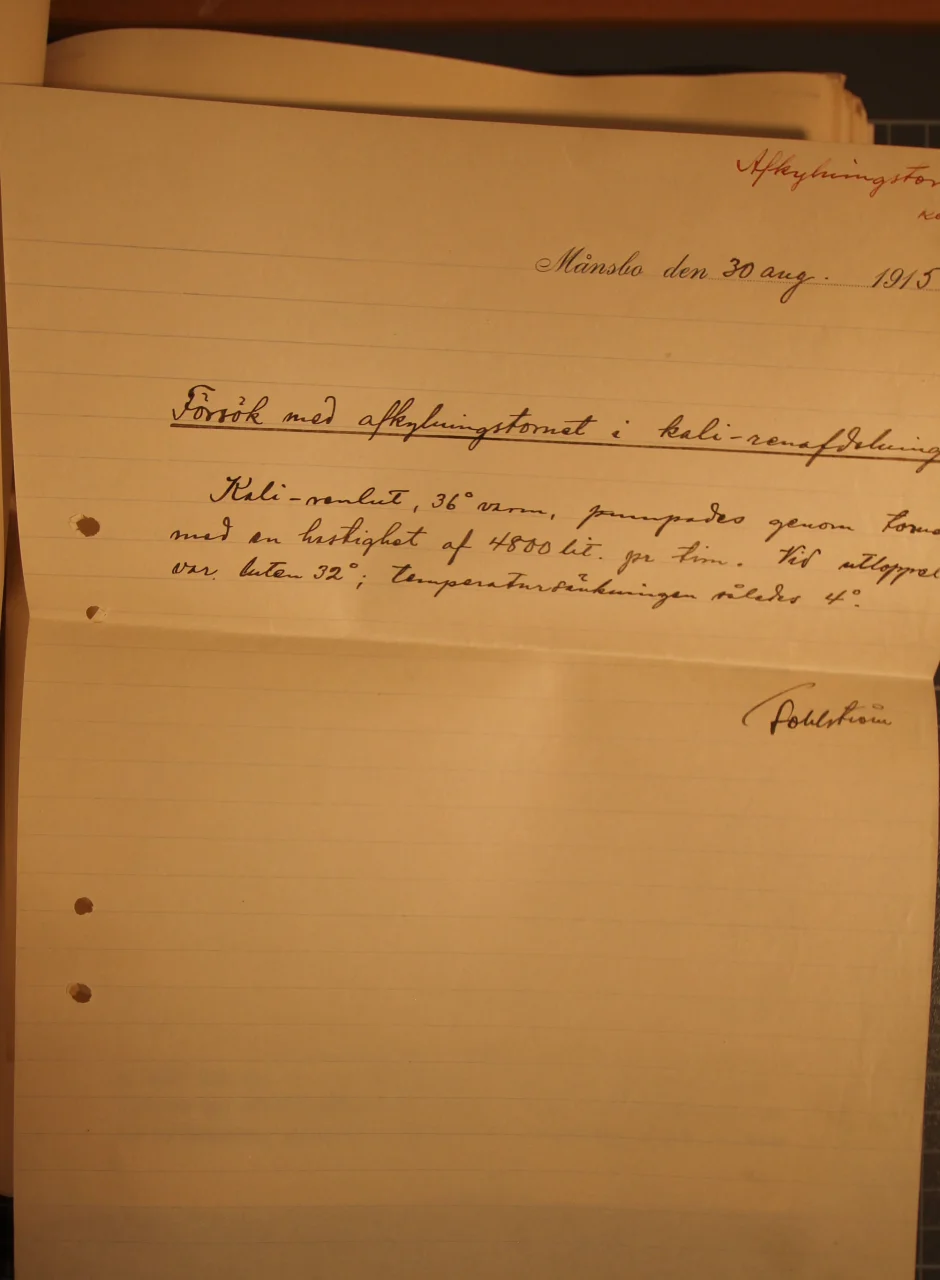 Afkylningstor
Månsbo den 30 aug. 1915
Försök med afkylningstornet i kali-renafdelning
Kali-renlut, 36° varm, pumpades genom torne
med en hastighet af 4800 lit. pr tim. Vid utloppet
var luten 32°; temperatursänkningen således 4°.